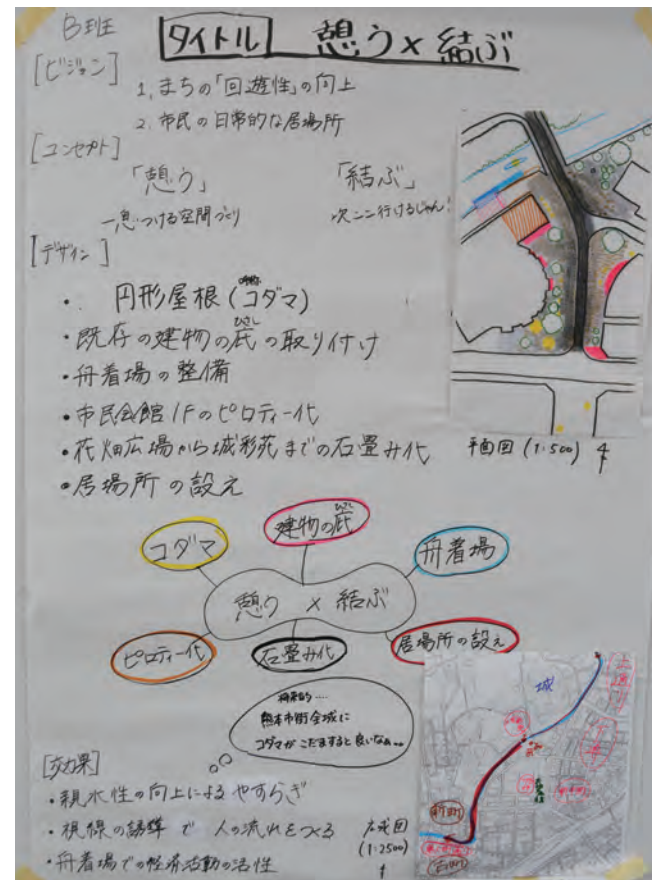 B班
[タイトル] 憩う×結ぶ
[ビジョン]
1. まちの「回遊性」の向上
2. 市民の日常的な居場所
[コンセプト]
「憩う」 「結ぶ」
一息つける空間づくり 次ここ行けるじゃん!
[デザイン]
・円形屋根(コダマ)
・既存の建物の庇(ひさし)の取り付け
・舟着場の整備
・市民会館1Fのピロティー化
・花畑広場から城彩苑までの石畳み化
・居場所の設え
平面図(1:500)
コダマ
建物の庇(ひさし)
舟着場
憩う × 結ぶ
ピロティー化
石畳み化
居場所の設え
将来的....
熊本市街全域に
コダマがこだますると良いなぁ..
城
新町
[効果]
・親水性の向上によるやすらぎ
・視線の誘導で人の流れをつくる
・舟着場での経済活動の活性
広域図
(1:2500)